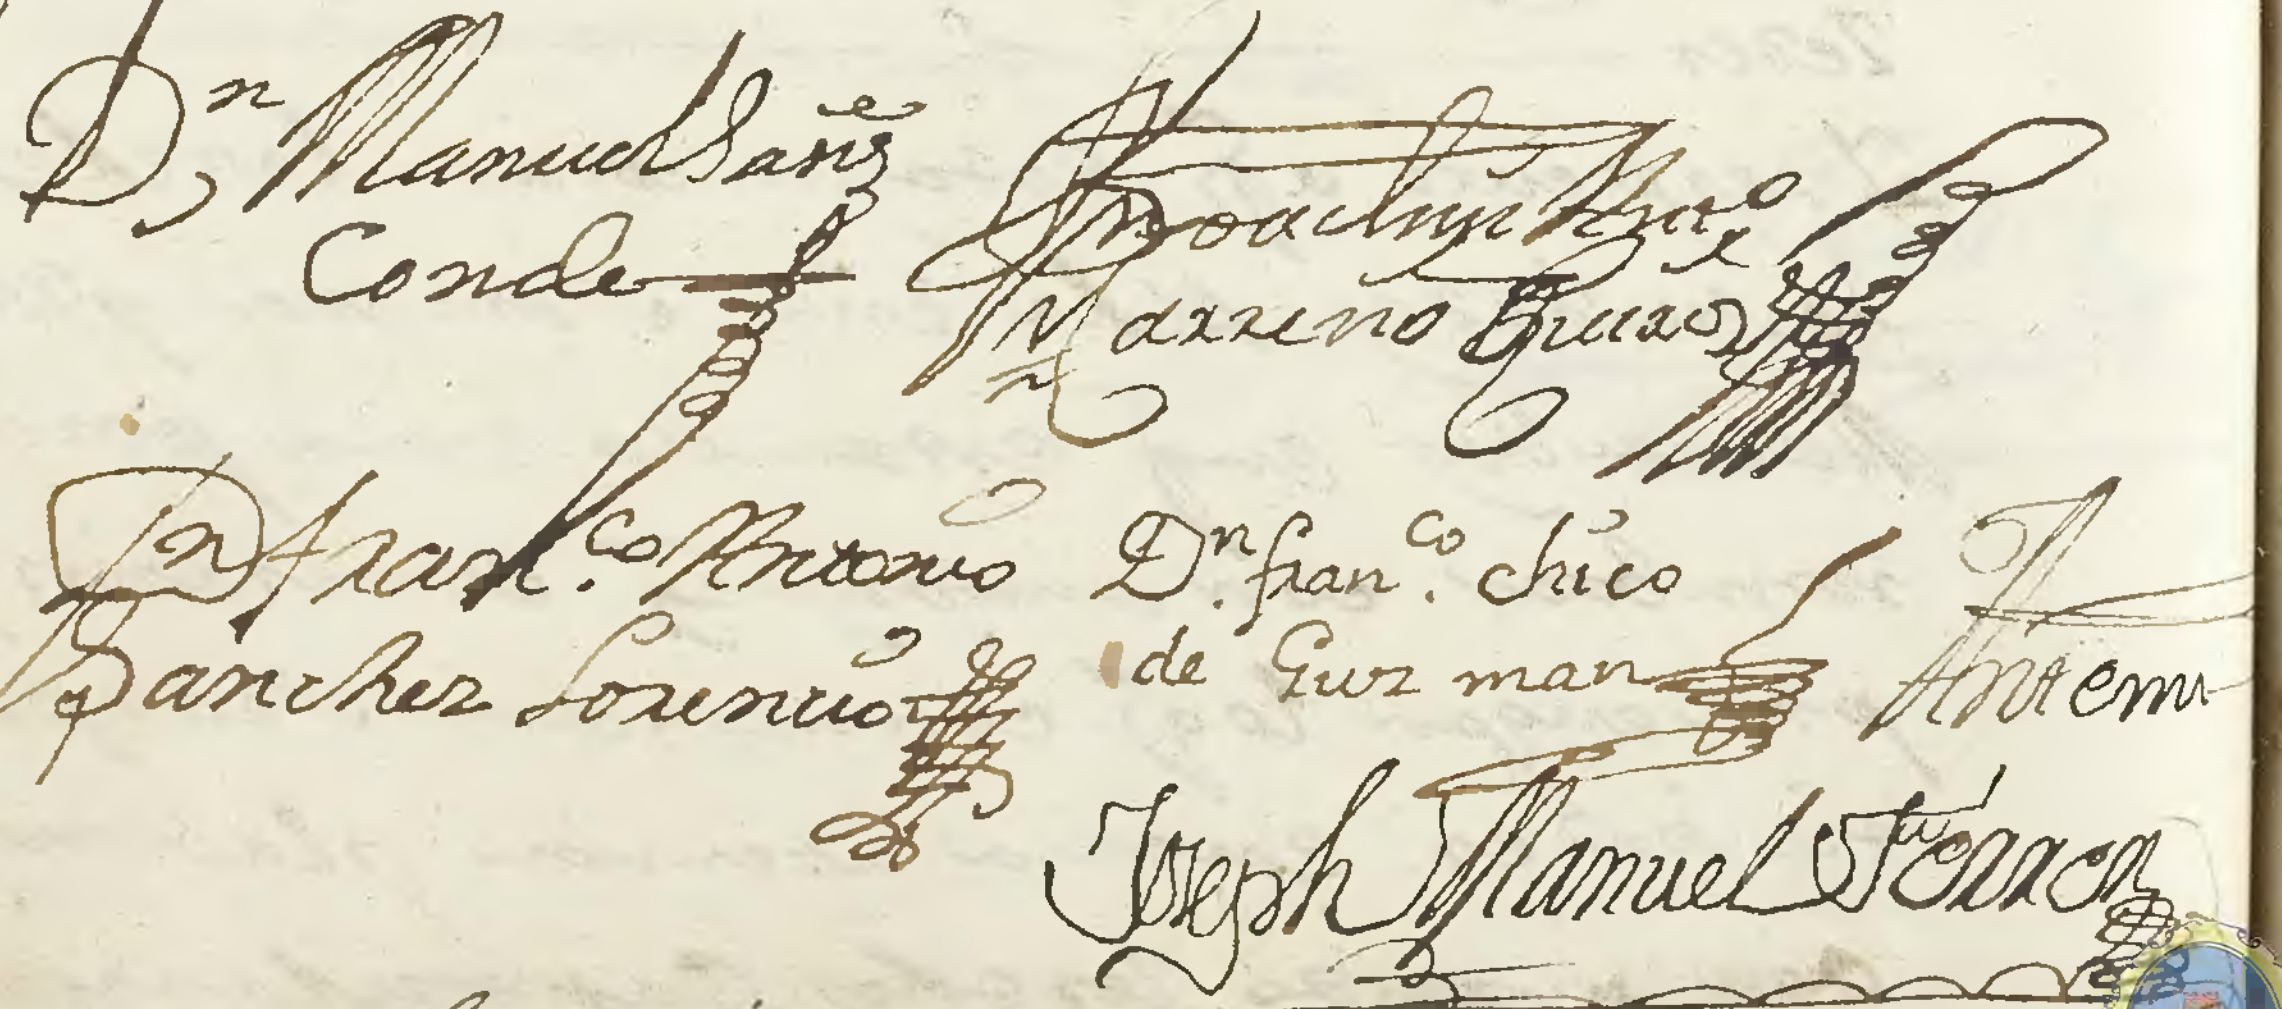 Dn Manuel Sanz
Conde
Dn Joachin Anto
Marreño
Dn Franco. Antonio
Sanchez Lorencio
Dn. fran.co chico
de Guzman
Antemi
Joseph Manuel Ferrer